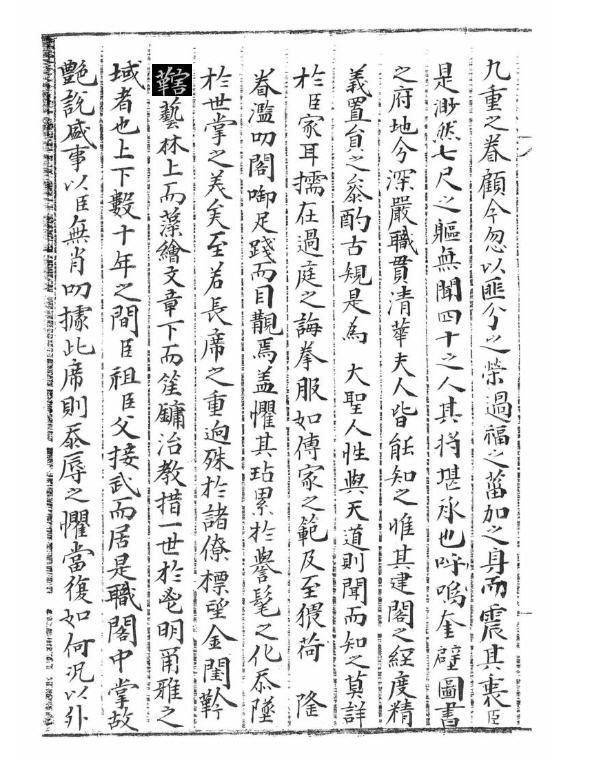 九重之眷顧今忽以匪分之榮過福之菑加之身而震其衷臣
是眇然七尺之軀無聞四十之人其將堪承也呼嗚奎壁圖書
之府地今深嚴職貫清華夫人皆能知之惟其建閣之經度精
義置負之叅酌古規是為 大聖人性與天道則聞而知之莫詳
於臣家耳擩在過庭之誨拳服如傳家之範及至猥荷 隆
眷濫叨閣啣足踐而目覩焉盖懼其玷累於譽髦之化忝墜
於世掌之美矣至若長席之重逈殊於諸僚標望金閨黔
轄藝林上而藻繪文章下而笙鏞治教措一世於甿明甭雅之
域者也上下數十年之間臣祖臣父接武而居是職閣中掌故
艶說盛事以臣無肖叨據此席則忝辱之懼當復如何况以外